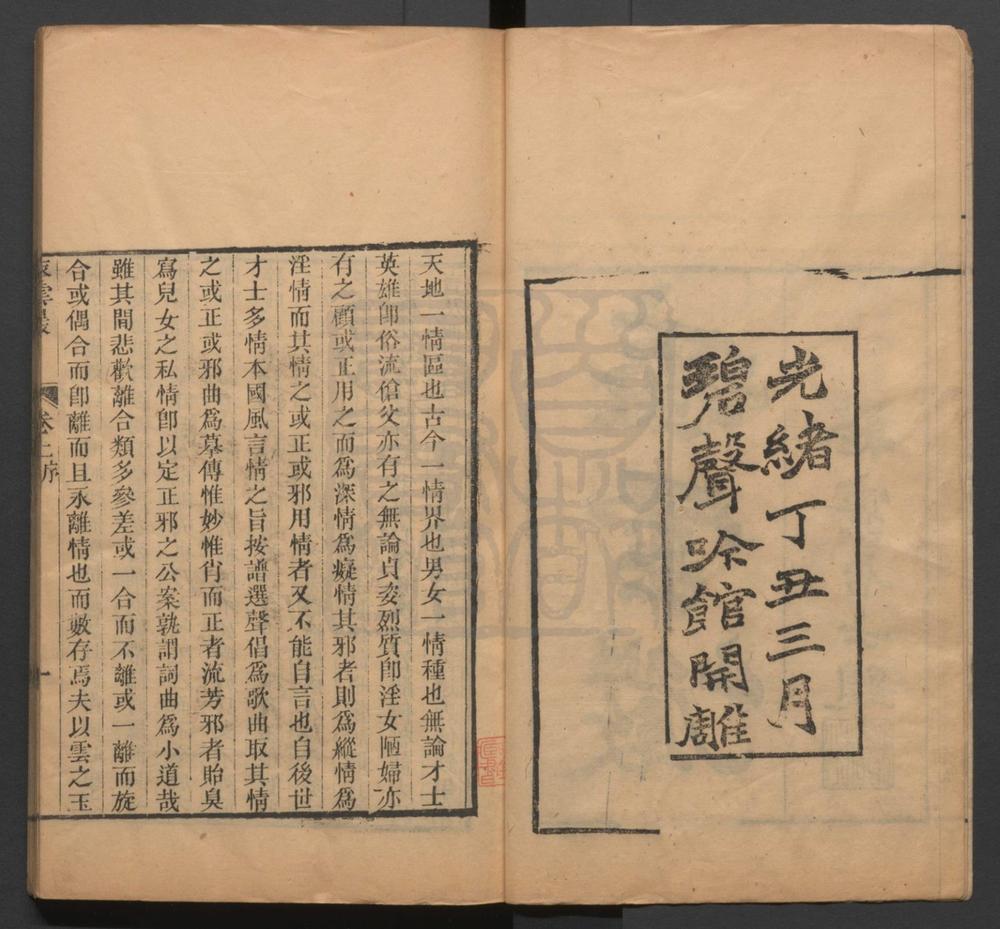 光緒丁丑三月
碧聲吟館開雕
天地一情區也古今一情界也男女一情種也無論才士
英雄卽俗流傖父亦有之無論貞姿烈質卽淫女陋婦亦
有之顧或正用之而爲深情爲癡情其邪者則爲縱情爲
淫情而其情之或正或邪用情者又不能自言也自後世
才士多情本國風言情之旨按譜選聲倡爲歌曲取其情
之或正或邪曲爲摹傳惟妙惟肖而正者流芳邪者貽臭
寫兒女之私情卽以定正邪之公案孰謂詞曲爲小道哉
雖其間悲歡離合類多參差或一合而不離或一離而旋
合或偶合而卽離而且永離情也而數存焉夫以雲之玉
雲巖
卷上序
一